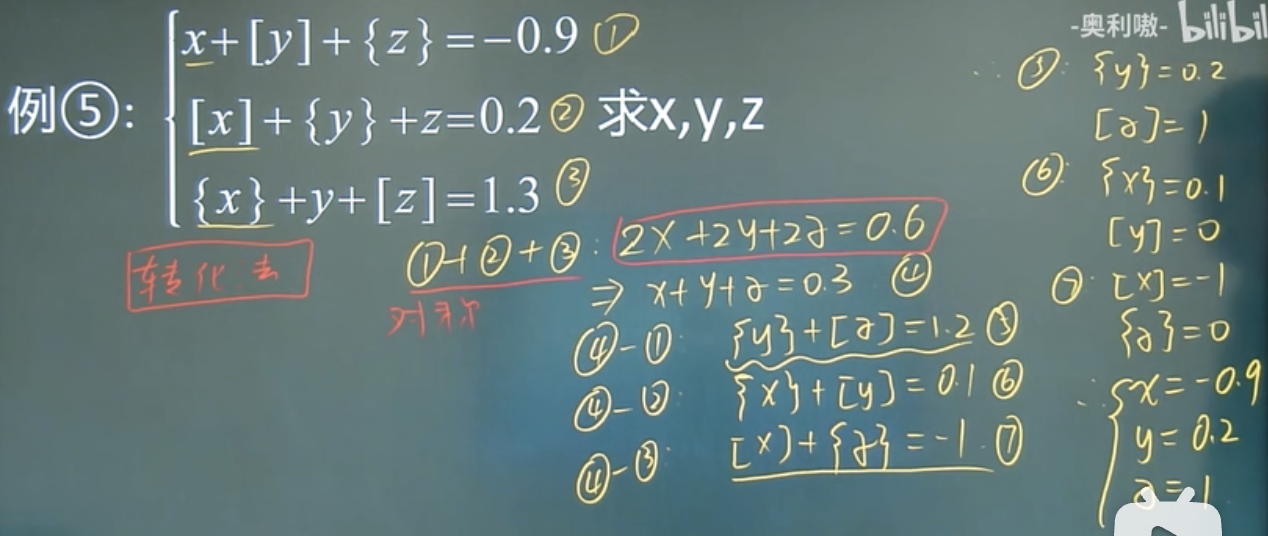 -奥利嗷- bilibil
例⑤:
x+[y]+{z}=-0.9 ①
[x]+{y}+z=0.2 ② 求x,y,z
{x}+y+[z]=1.3 ③
转化去
①+②+③: 2x+2y+2z=0.6
对称
⇒ x+y+z=0.3 ④
④-①: {y}+[z]=1.2 ⑤
④-②: {x}+[y]=0.1 ⑥
④-③: [x]+{z}=-1 ⑦
∴ ⑤: {y}=0.2
[z]=1
⑥: {x}=0.1
[y]=0
⑦: [x]=-1
{z}=0
∴ x=-0.9
y=0.2
z=1